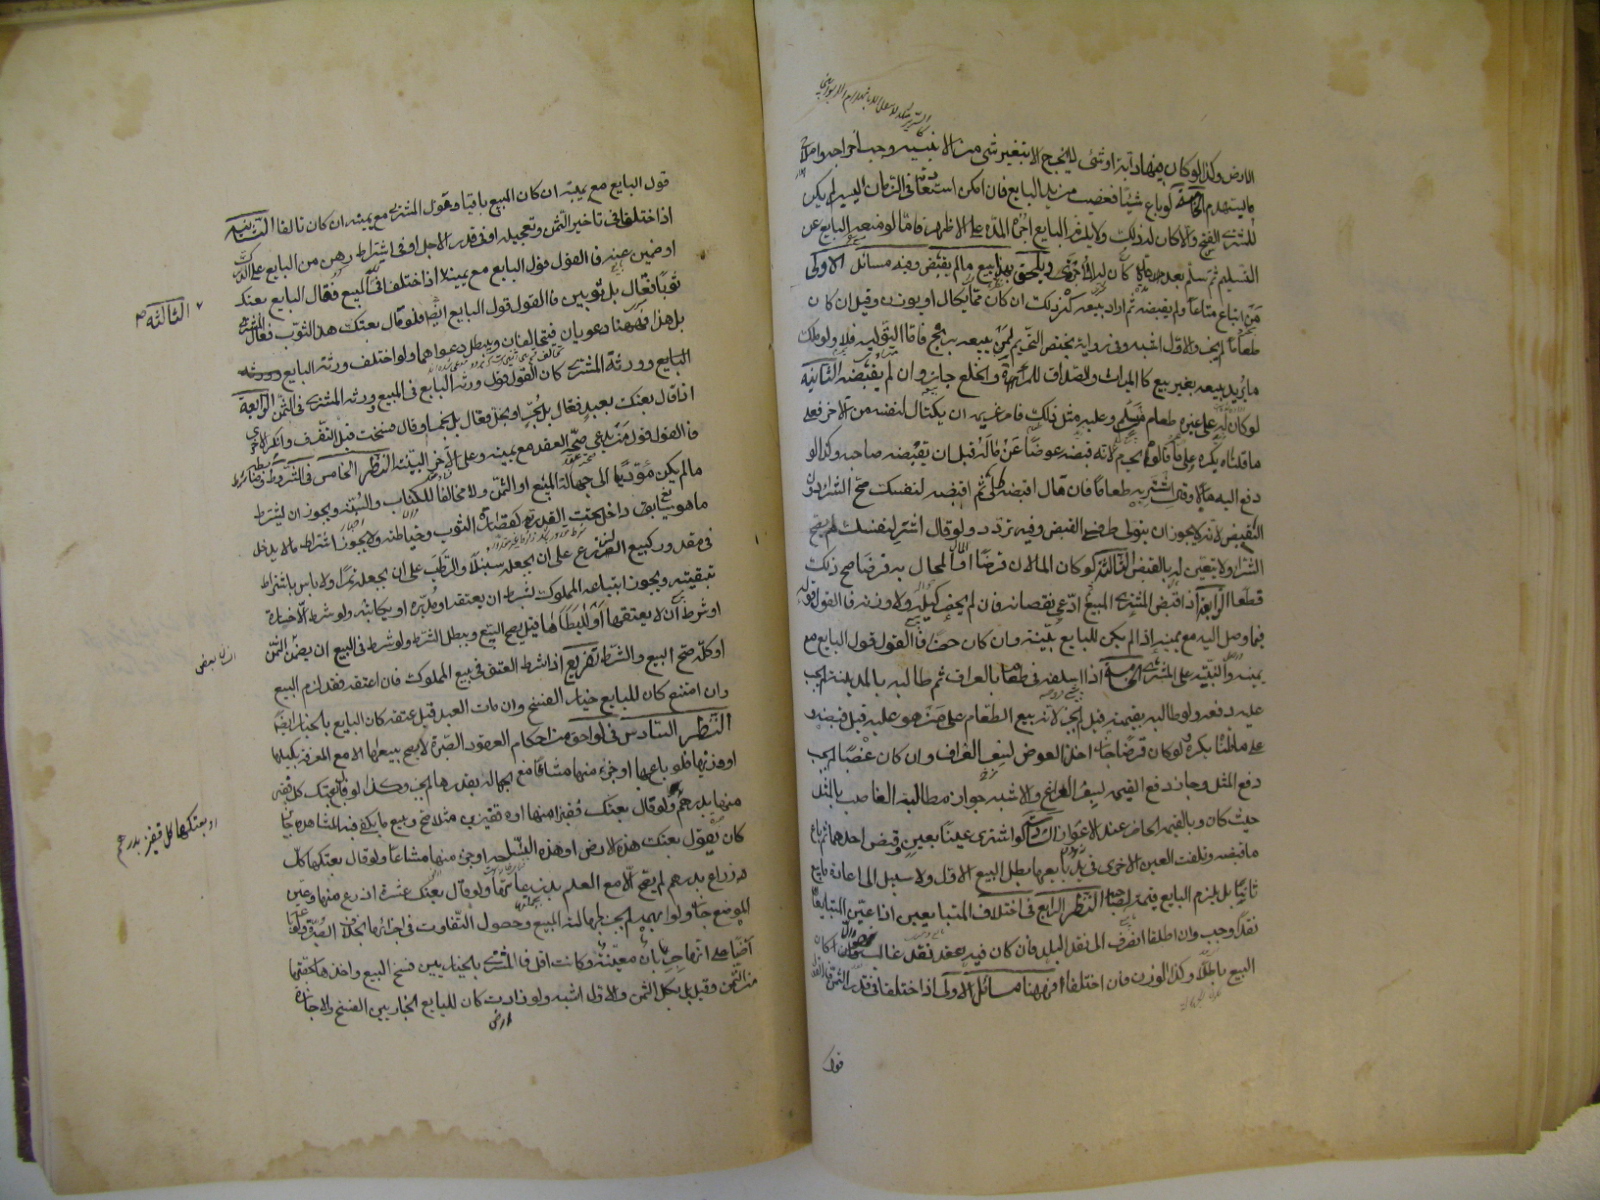 الارض وكذا لو كان فيها دابة او شئ لا يخرج الا بتغيير شئ من الابنية وجب اخراجه واصلاح
ما يستهدم الخامسة لو باع شيئا فغصب من يد البايع فان امكن استعادته في الزمان اليسير لم يكن
للمشتري الفسخ والا كان له ذلك ولا يلزم البايع اجرة المدة على الاظهر فاما لو منعه البايع عن
التسليم ثم سلم بعد مدة كان له الاجرة ويلحق بهذا بيع ما لم يقبض وفيه مسائل الاولى
من ابتاع متاعا ولم يقبضه ثم اراد بيعه كره ذلك ان كان مما يكال او يوزن وقيل ان كان
طعاما لم يجز والاول اشبه وفي رواية يختص التحريم بمن يبيعه بربح فاما التولية فلا ولو ملك
ما يريد بيعه بغير بيع كالميراث والصداق للمرأة والخلع جاز وان لم يقبضه الثانية
لو كان له على غيره طعام من سلم وعليه مثل ذلك فامر غريمه ان يكتال لنفسه من الآخر فعلى
ما قلناه يكره وعلى ما قالوه يحرم لانه قبضه عوضا عن ماله قبل ان يقبضه صاحبه وكذا لو
دفع اليه مالا وقال اشتر به طعاما فان قال اقبضه لي ثم اقبضه لنفسك صح الشراء دون
القبض لانه لا يجوز ان يتولى طرفي القبض وفيه تردد ولو قال اشتر لنفسك لم يصح
الشراء ولا يتعين له بالقبض الثالثة لو كان المالان قرضا او المال المحال به قرضا صح ذلك
قطعا الرابعة اذا قبض المشتري المبيع ثم ادعى نقصانه فان لم يحضر كيله ولا وزنه فالقول قوله
فيما وصل اليه مع يمينه اذا لم يكن للبايع بينة وان كان حضر فالقول قول البايع مع
يمينه والبينة على المشتري الخامسة اذا اسلفه في طعام بالعراق ثم طالبه بالمدينة لم يجب
عليه دفعه ولو طالبه بقيمته قيل لم يجز لانه بيع الطعام على من هو عليه قبل قبضه و
على ما قلناه يكره ولو كان قرضا جاز اخذ العوض بسعر العراق وان كان غصبا لم يجب
دفع المثل وجاز دفع القيمة بسعر العراق والاشبه جواز مطالبة الغاصب بالمثل
حيث كان وبالقيمة الحاضرة عند الاعواز السادسة لو اشترى عينا بعين وقبض احدهما ثم باع
ما قبضه وتلفت العين الاخرى في يد بايعها بطل البيع الاول ولا سبيل الى اعادة ما بيع
ثانيا بل يلزم البايع قيمته لصاحبه النظر الرابع في اختلاف المتبايعين اذا عين المتبايعان
نقدا وجب وان اطلقا انصرف الى نقد البلد فان كان فيه نقد غالب والا كان
البيع باطلا وكذا الوزن فان اختلفا فههنا مسائل الاولى اذا اختلفا في قدر الثمن فالقول
قول
قول البايع مع يمينه ان كان المبيع باقيا وقول المشتري مع يمينه ان كان تالفا الثانية
اذا اختلفا في تأخير الثمن وتعجيله او في قدر الاجل او في اشتراط رهن من البايع على الدرك
او ضمين عنه فالقول قول البايع مع يمينه اذا اختلفا في المبيع فقال البايع بعتك
ثوبا فقال بل ثوبين فالقول قول البايع ايضا فلو قال بعتك هذا الثوب فقال المشتري
بل هذا فههنا دعويان فيتحالفان ويبطل دعواهما ولو اختلف ورثة البايع
البايع وورثة المشتري كان القول قول ورثة البايع في المبيع وورثة المشتري في الثمن الرابعة
اذا قال بعتك بعبد فقال بل بحر او بخل فقال بل بخمر او قال فسخت قبل التفرق وانكر الآخر
فالقول قول من يدعي صحة العقد مع يمينه وعلى الآخر البينة النظر الخامس في الشروط وضابطه
ما لم يكن مؤديا الى جهالة المبيع او الثمن ولا مخالفا للكتاب والسنة ويجوز ان يشترط
ما هو سايغ داخل تحت القدرة كقصارة الثوب وخياطته ولا يجوز اشتراط ما لا يدخل
في مقدوره كبيع الزرع على ان يجعله سنبلا والرطب على ان يجعله تمرا ولا باس باشتراط
تبقيته ويجوز ابتياع المملوك بشرط ان يعتقه او يدبره او يكاتبه ولو شرط الا خسارة
او شرط ان لا يعتقها او لا يطأها قيل يصح البيع ويبطل الشرط ولو شرط في البيع ان يضمن الثمن
او كله صح البيع والشرط تفريع اذا شرط العتق في بيع المملوك فان اعتقه فقد لزم البيع
وان امتنع كان للبايع خيار الفسخ وان مات العبد قبل عتقه كان البايع بالخيار ايضا
النظر السادس في لواحق من احكام العقود الصبرة لا يصح بيعها الا مع المعرفة بكيلها
او وزنها فلو باعها او جزء منها مشاعا مع الجهالة بقدرها لم يجز وكذا لو قال بعتك كل قفيز
منها بدرهم ولو قال بعتك قفيزا منها او قفيزين مثلا صح وبيع ما يكفي فيه المشاهدة جايز
كان يقول بعتك هذه الارض او هذه الساحة او جزء منها مشاعا ولو قال بعتكها كل
ذراع بدرهم لم يصح الا مع العلم بذرعانها ولو قال بعتك عشرة اذرع منها وعين
الموضع جاز ولو ابهمه لم يجز لجهالة المبيع وحصول التفاوت في اجزائها بخلاف الصبرة ولو باعه
ارضا على انها جربان معينة وكانت اقل فالمشتري بالخيار بين فسخ البيع واخذها بحصتها
من الثمن وقيل بل بكل الثمن والاول اشبه ولو زادت كان للبايع الخيار بين الفسخ والاجازة
الثالثة
او بعتكها كل قفيز بدرهم
ارضا